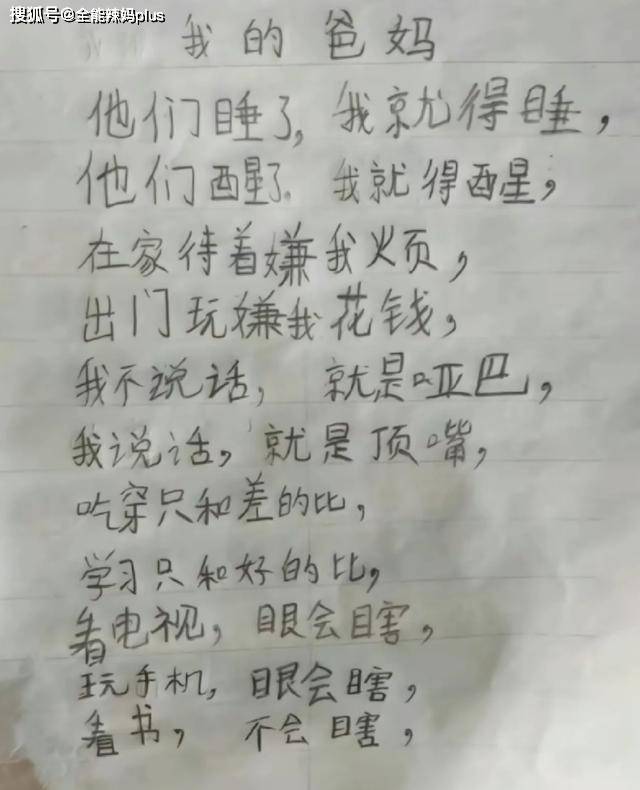 搜狐号@全能辣妈plus
我的爸妈
他们睡了,我就得睡,
他们醒了.我就得醒,
在家待着嫌我烦,
出门玩嫌我花钱,
我不说话,就是哑巴,
我说话,就是顶嘴,
吃穿只和差的比,
学习只和好的比,
看电视,眼会瞎,
玩手机,眼会瞎,
看书,不会瞎,